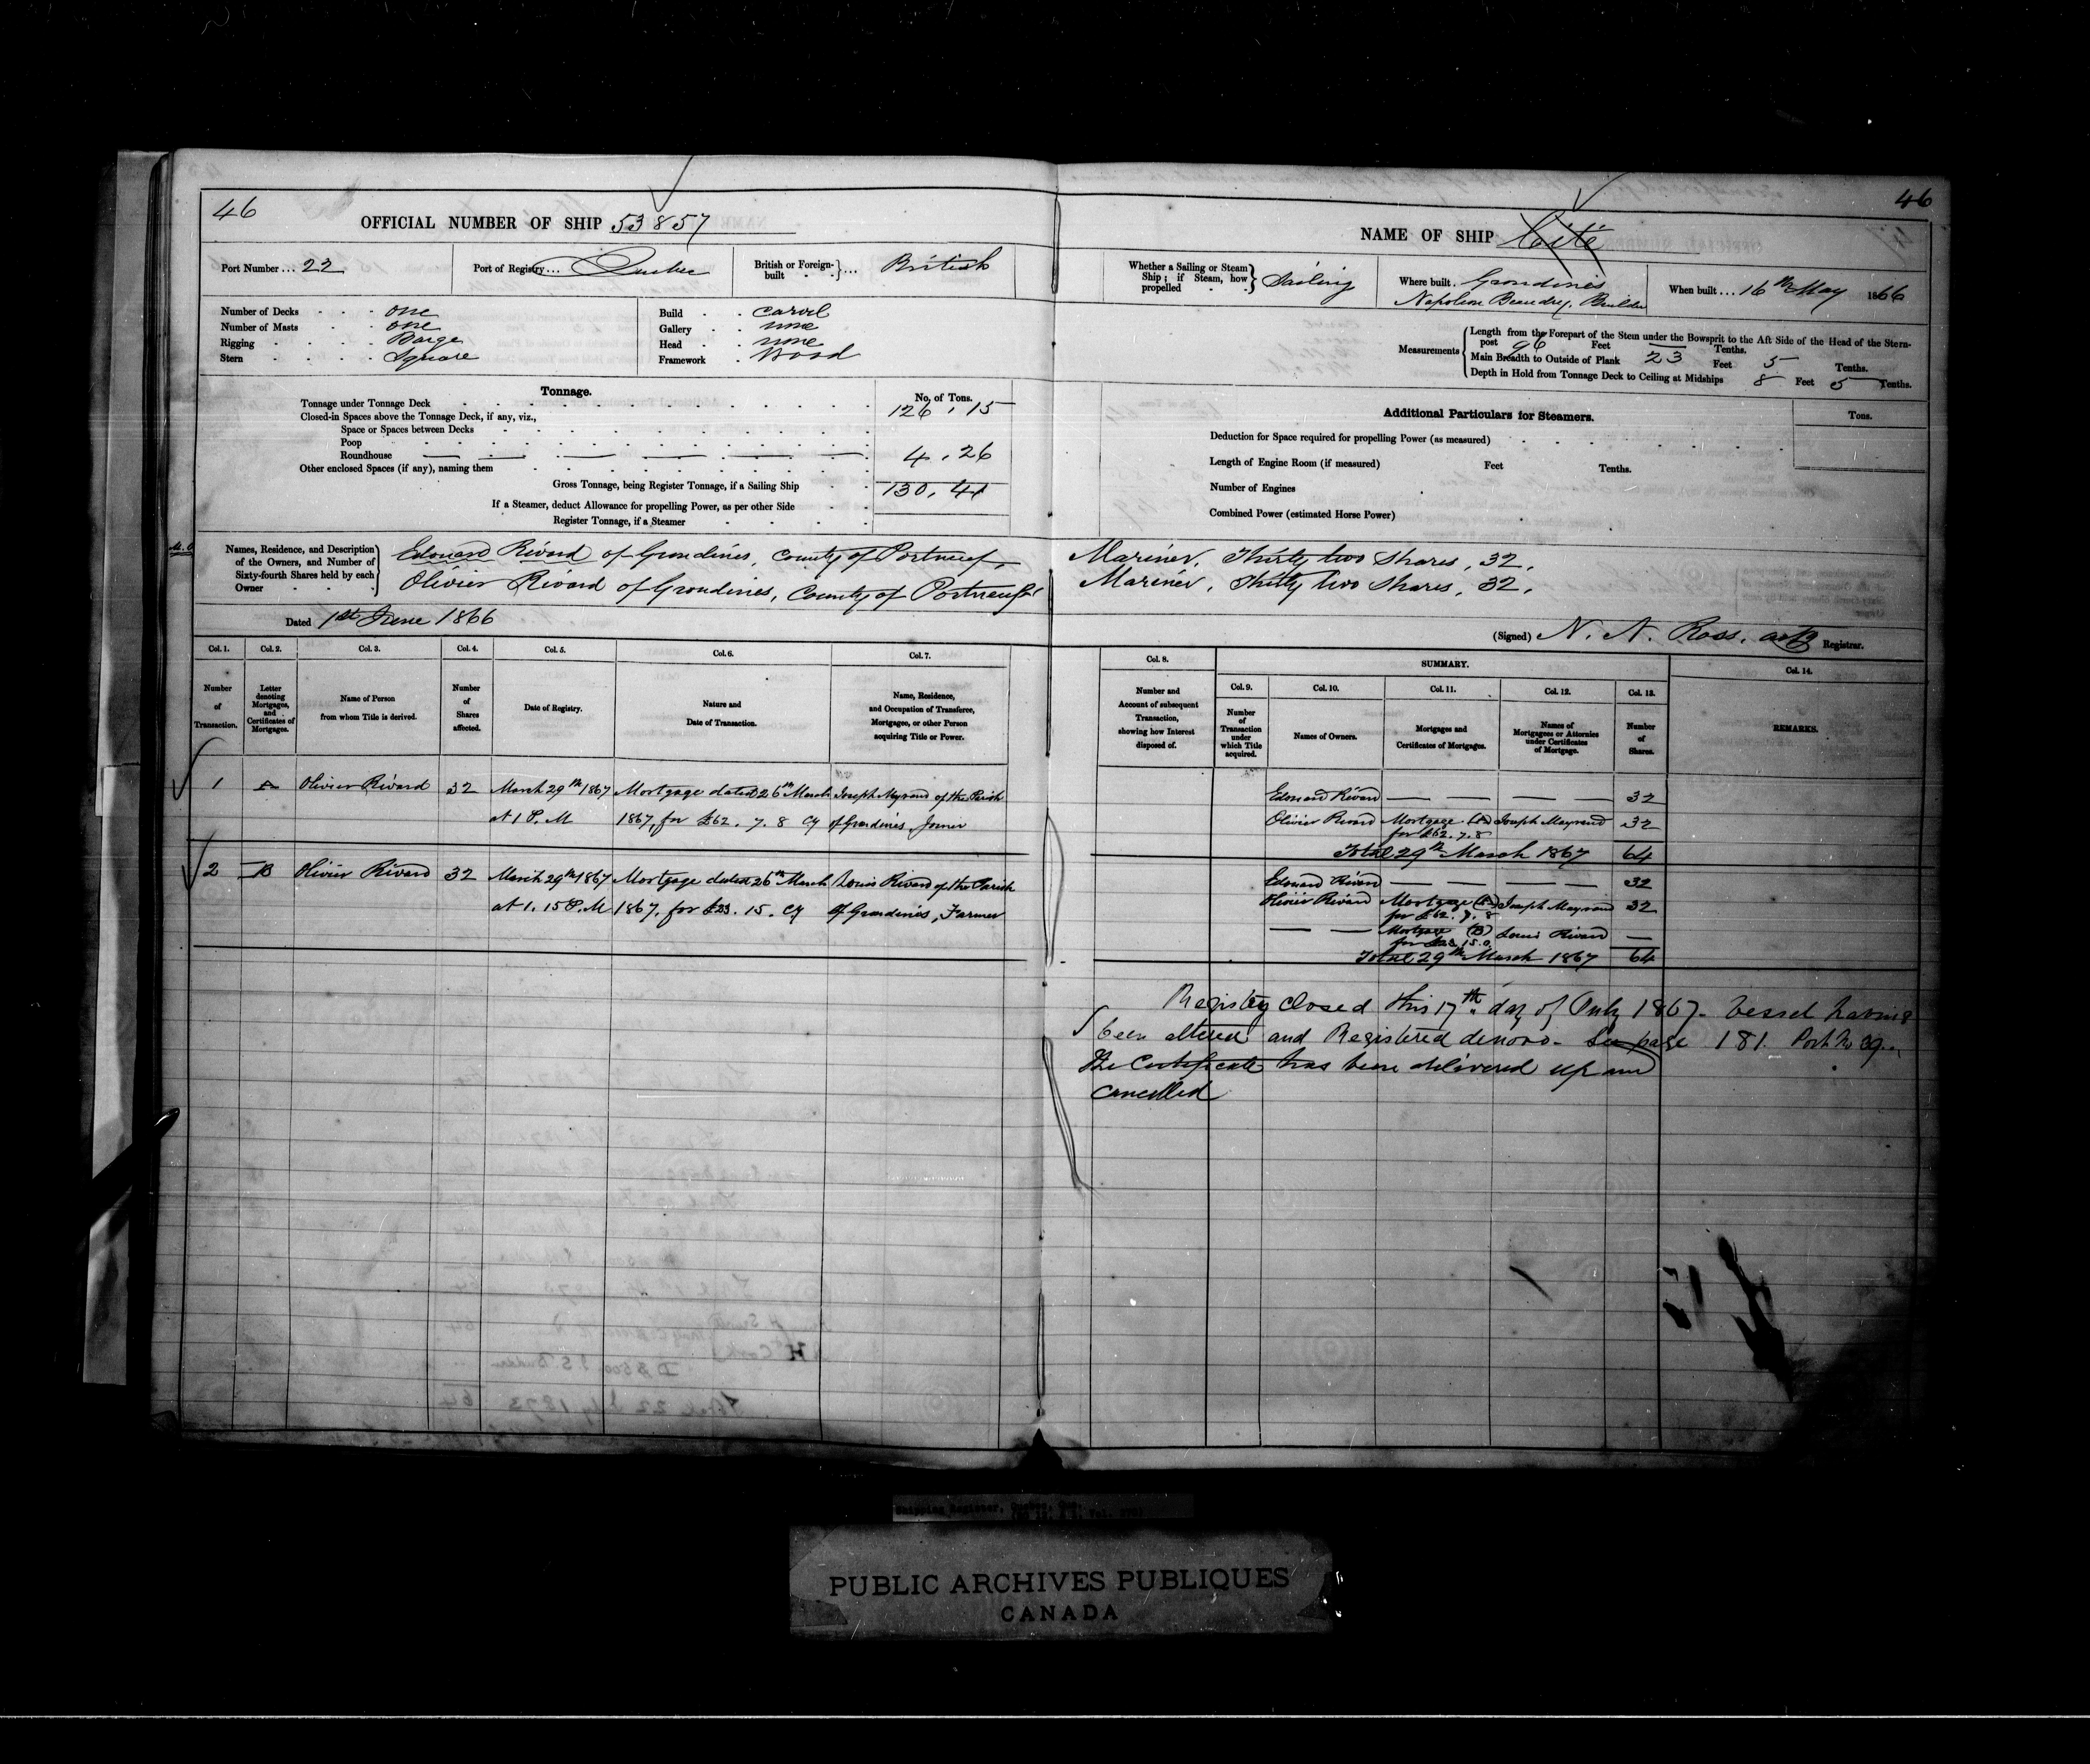 46
OFFICIAL NUMBER OF SHIP 53857
Port Number ... 22
Port of Registry ... Quebec
British or Foreign-built } ... British
Number of Decks one
Number of Masts one
Rigging Barge
Stern Square
Build carvel
Gallery none
Head none
Framework Wood
Tonnage.
No. of Tons.
Tonnage under Tonnage Deck 126.15
Closed-in Spaces above the Tonnage Deck, if any, viz.,
Space or Spaces between Decks
Poop
Roundhouse 4.26
Other enclosed Spaces (if any), naming them
Gross Tonnage, being Register Tonnage, if a Sailing Ship 130.41
If a Steamer, deduct Allowance for propelling Power, as per other Side
Register Tonnage, if a Steamer
46
NAME OF SHIP Cité
Whether a Sailing or Steam Ship; if Steam, how propelled } Sailing
Where built. Grondines
Napoleon Beaudry, Builder
When built ... 16th May 1866
Measurements
Length from the Forepart of the Stem under the Bowsprit to the Aft Side of the Head of the Stern-
post 96 Feet Tenths.
Main Breadth to Outside of Plank 23 Feet 5 Tenths.
Depth in Hold from Tonnage Deck to Ceiling at Midships 8 Feet 5 Tenths.
Additional Particulars for Steamers.
Tons.
Deduction for Space required for propelling Power (as measured)
Length of Engine Room (if measured) Feet Tenths.
Number of Engines
Combined Power (estimated Horse Power)
Names, Residence, and Description of the Owners, and Number of Sixty-fourth Shares held by each Owner
Edouard Rivard of Grondines, County of Portneuf, Mariner, Thirty two Shares, 32.
Olivier Rivard of Grondines, County of Portneuf Mariner, Thirty two Shares, 32.
Dated 1st June 1866
(Signed) N. N. Ross, actg Registrar.
Col. 1. Col. 2. Col. 3. Col. 4. Col. 5. Col. 6. Col. 7.
Number of Transaction.
Letter denoting Mortgages, and Certificates of Mortgages.
Name of Person from whom Title is derived.
Number of Shares affected.
Date of Registry.
Nature and Date of Transaction.
Name, Residence, and Occupation of Transferee, Mortgagee, or other Person acquiring Title or Power.
1 A Olivier Rivard 32 March 29th 1867 Mortgage dated 26th March Joseph Mayrand of the Parish
at 1 P.M 1867, for £62.7.8 Cy of Grondines, Joiner
2 B Olivier Rivard 32 March 29th 1867 Mortgage dated 26th March Louis Rivard of the Parish
at 1.15 P.M 1867, for £23.15. Cy of Grondines, Farmer
Col. 8.
SUMMARY.
Col. 9. Col. 10. Col. 11. Col. 12. Col. 13.
Col. 14.
Number and Account of subsequent Transaction, showing how Interest disposed of.
Number of Transaction under which Title acquired.
Names of Owners.
Mortgages and Certificates of Mortgages.
Names of Mortgagees or Attornies under Certificates of Mortgage.
Number of Shares.
REMARKS.
Edouard Rivard 32
Olivier Rivard Mortgage (A) Joseph Mayrand 32
for £62.7.8
Total 29th March 1867 64
Edouard Rivard 32
Olivier Rivard Mortgage (A) Joseph Mayrand 32
for £62.7.8
Mortgage (B) Louis Rivard
for £23.15.0
Total 29th March 1867 64
Registry closed this 17th day of July 1867. Vessel having
been altered and Registered denovo. See page 181. Port No 39.
The Certificate has been delivered up and
cancelled
Shipping Register, Quebec, Que.
PUBLIC ARCHIVES PUBLIQUES
CANADA